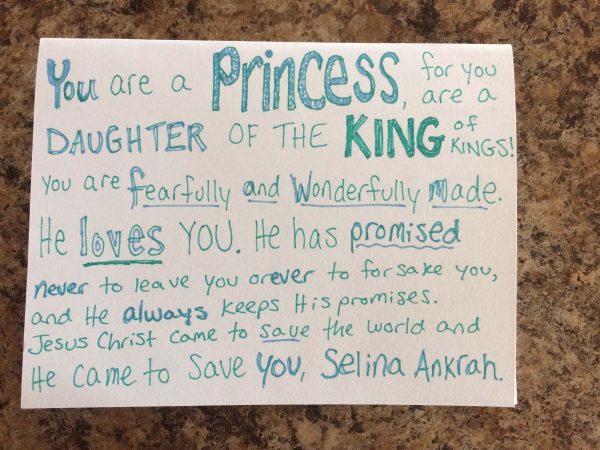 You are a Princess, for you are a
DAUGHTER OF THE KING of KINGS!
you are fearfully and Wonderfully made.
He loves YOU. He has promised
never to leave you or ever to forsake you,
and He always keeps His promises.
Jesus Christ came to save the world and
He came to save you, Selina Ankrah.